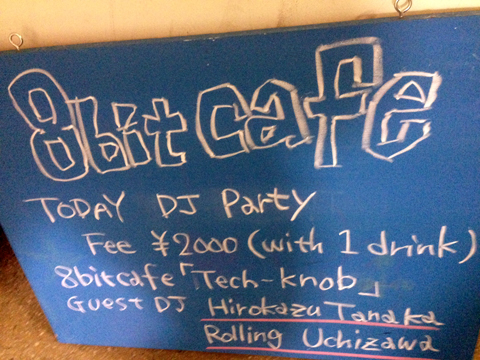 8bit cafe
TODAY DJ Party
Fee ¥2000 (with 1 drink)
8bitcafe「Tech-knob」
Guest DJ Hirokazu Tanaka
Rolling Uchizawa